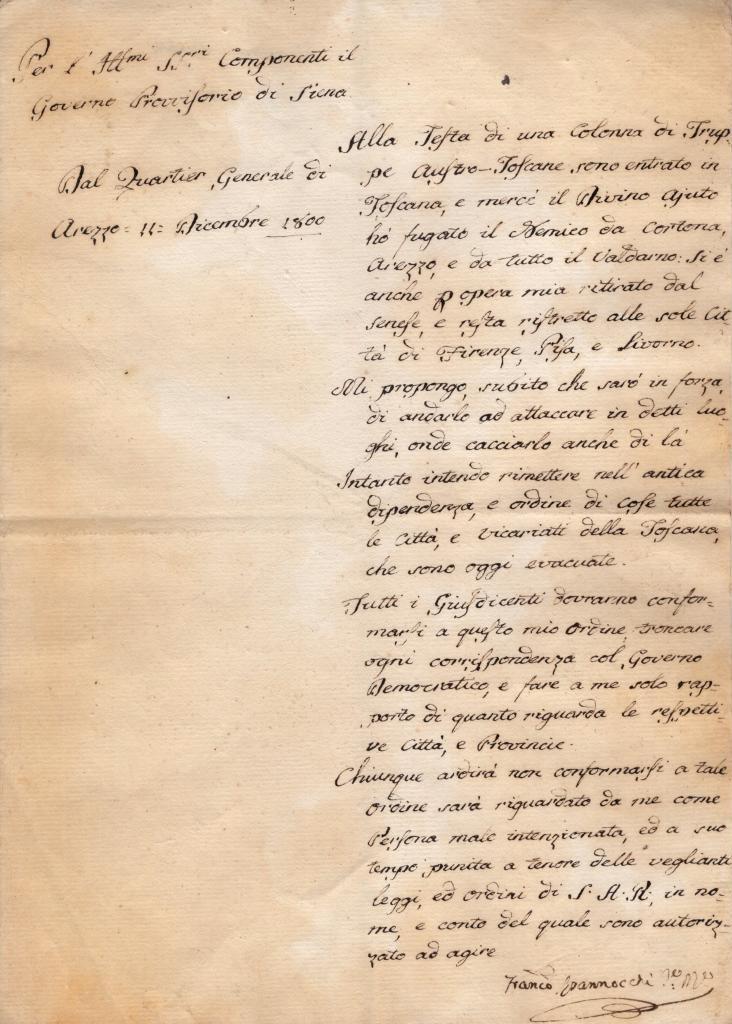 Per l' Ill.mi SS.ri Componenti il
Governo Provvisorio di Siena
Dal Quartier Generale di
Arezzo = 11 = Dicembre 1800
Alla Testa di una Colonna di Trup-
pe Austro-Toscane sono entrato in
Toscana, e mercè il Divino Ajuto
hò fugato il Nemico da Cortona,
Arezzo, e da tutto il Valdarno: si è
anche p opera mia ritirato dal
senese, e resta ristretto alle sole Cit-
tà di Firenze, Pisa, e Livorno.
Mi propongo, subito che sarò in forza,
di andarlo ad attaccare in detti luo-
ghi, onde cacciarlo anche di là
Intanto intendo rimettere nell' antica
dipendenza, e ordine di cose tutte
le Città, e Vicariati della Toscana,
che sono oggi evacuate.
Tutti i Giusdicenti dovranno confor-
marsi a questo mio Ordine, troncare
ogni corrispondenza col Governo
Democratico, e fare a me solo rap-
porto di quanto riguarda le respetti-
ve Città, e Provincie.
Chiunque ardirà non conformarsi a tale
Ordine sarà riguardato da me come
Persona male intenzionata, ed a suo
tempo punita a tenore delle veglianti
leggi, ed ordini di S. A. R., in no-
me, e conto del quale sono autoriz-
zato ad agire
Franco Spannocchi